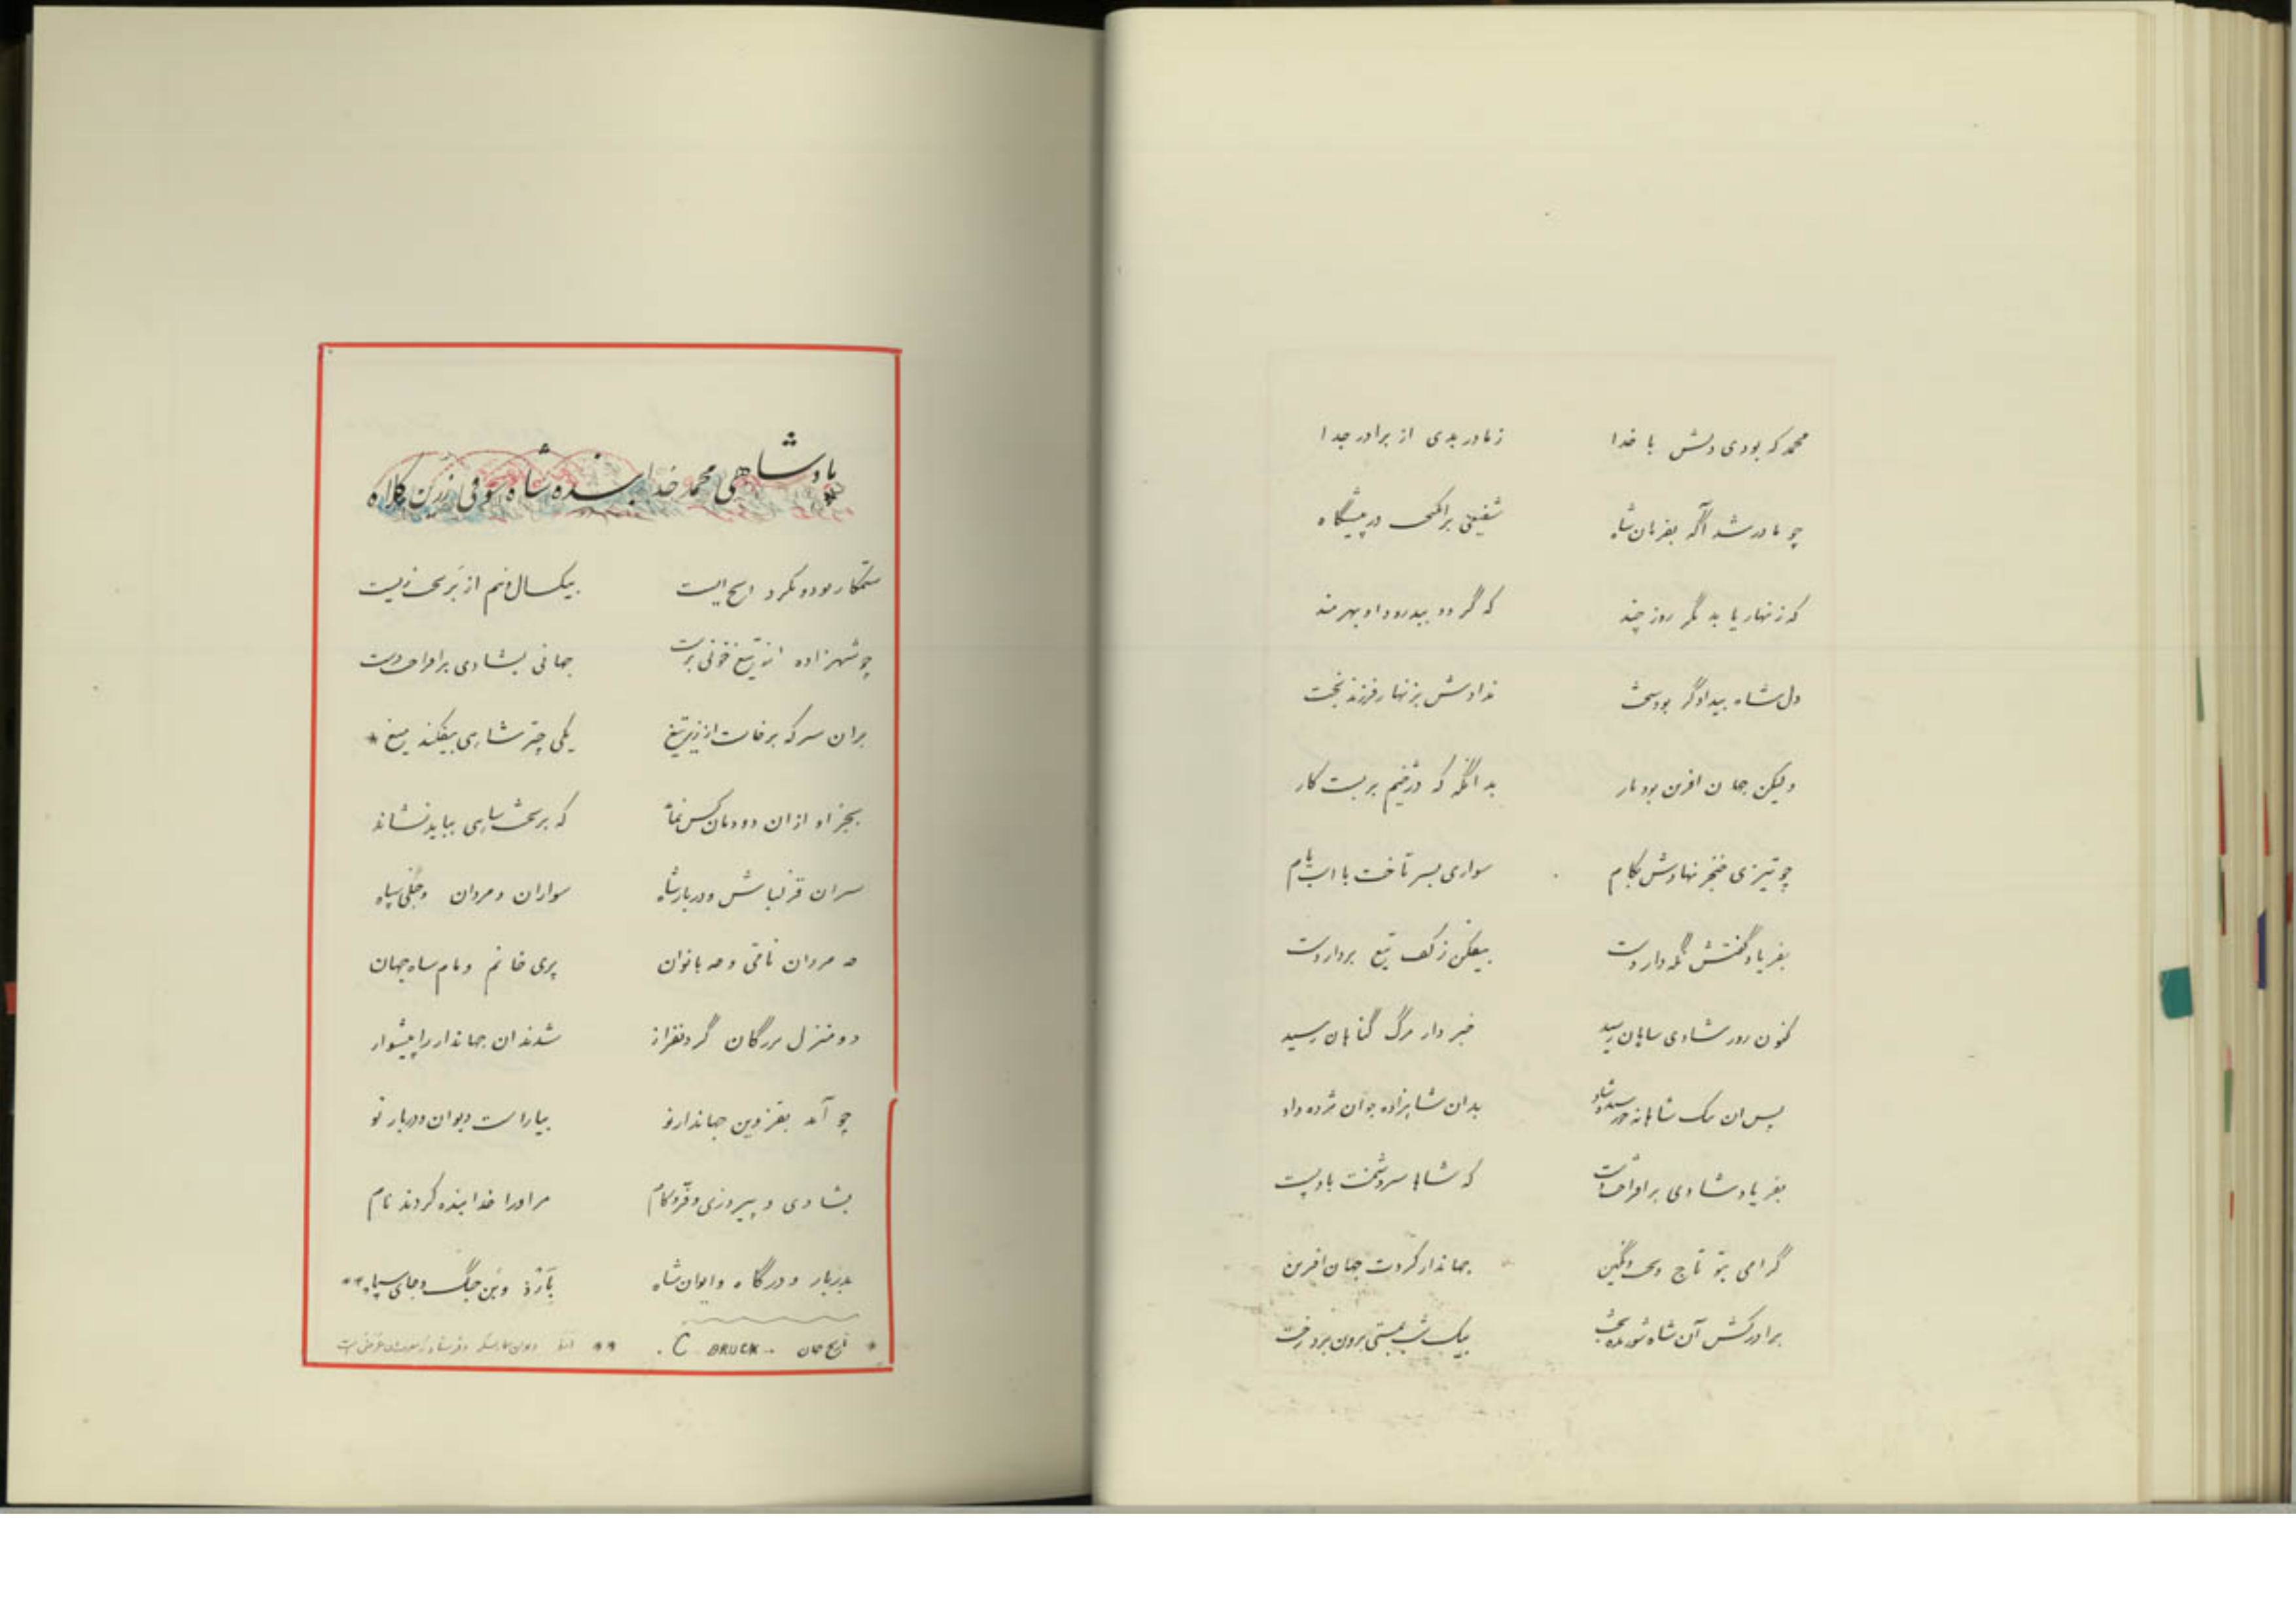 محمد که بودی دلش با خدا    ز مادر بدی از برادر جدا
چو مادر شد آگه بفرمان شاه    شفیعی برانگیخت در پیشگاه
که زنهار یابد مگر روز چند    که گردد بدرود او بهرمند
دل شاه بیدادگر بود سخت    ندادش بزنهار فرزند بخت
ولیکن جهان افرین بود یار    بدانگه که دژخیم بر بست کار
چو تیزی خنجر نهادش بکام    سواری بسر تاخت با
بفریاد گفتش نگه دار دست    بیفکن ز کف تیغ بردار دست
کنون روز شادی شاهان رسید    خبر دار مرگ گناهان رسید
پس آن شاهانه    بدان شاهزاده جوان مژده داد
بفریاد شادی برافراخت    که شاها سر دشمنت باد پست
گرامی بتو تاج و تخت و نگین    جهاندار کردت جهان افرین
برادر کش آن شاه شوریده بخت    بیک شب ز مستی برون برد رخت
پادشاهی محمد خدابنده شاه صوفی زرین کلاه
ستمکار بود و نکرد ایچ ایست    بیکسال و نیم از بر تخت زیست
چو شهزاده از تیغ خونی برست    جهانی بشادی برافراخت دست
بران سر که برخاست از زیر تیغ    یکی چتر شاهی بیفکند میغ *
بجز او از ان دودمان کس نماند    که بر تخت شاهی بباید نشاند
سران قزلباش و دربار شاه    سواران و مردان و جنگی سپاه
مه مردان نامی و مه بانوان    پری خانم و مام شاه جهان
دو منزل بزرگان گردنفراز    شدند ان جهاندار را پیشواز
چو آمد بقزوین جهاندار نو    بیاراست دیوان و دربار نو
بشادی و پیروزی و فر و کام    مر اورا خدابنده کردند نام
بدربار و درگاه و ایوان شاه    و جنگ و جای سپاه **
* تاریخ جهان C BRUCK.    **